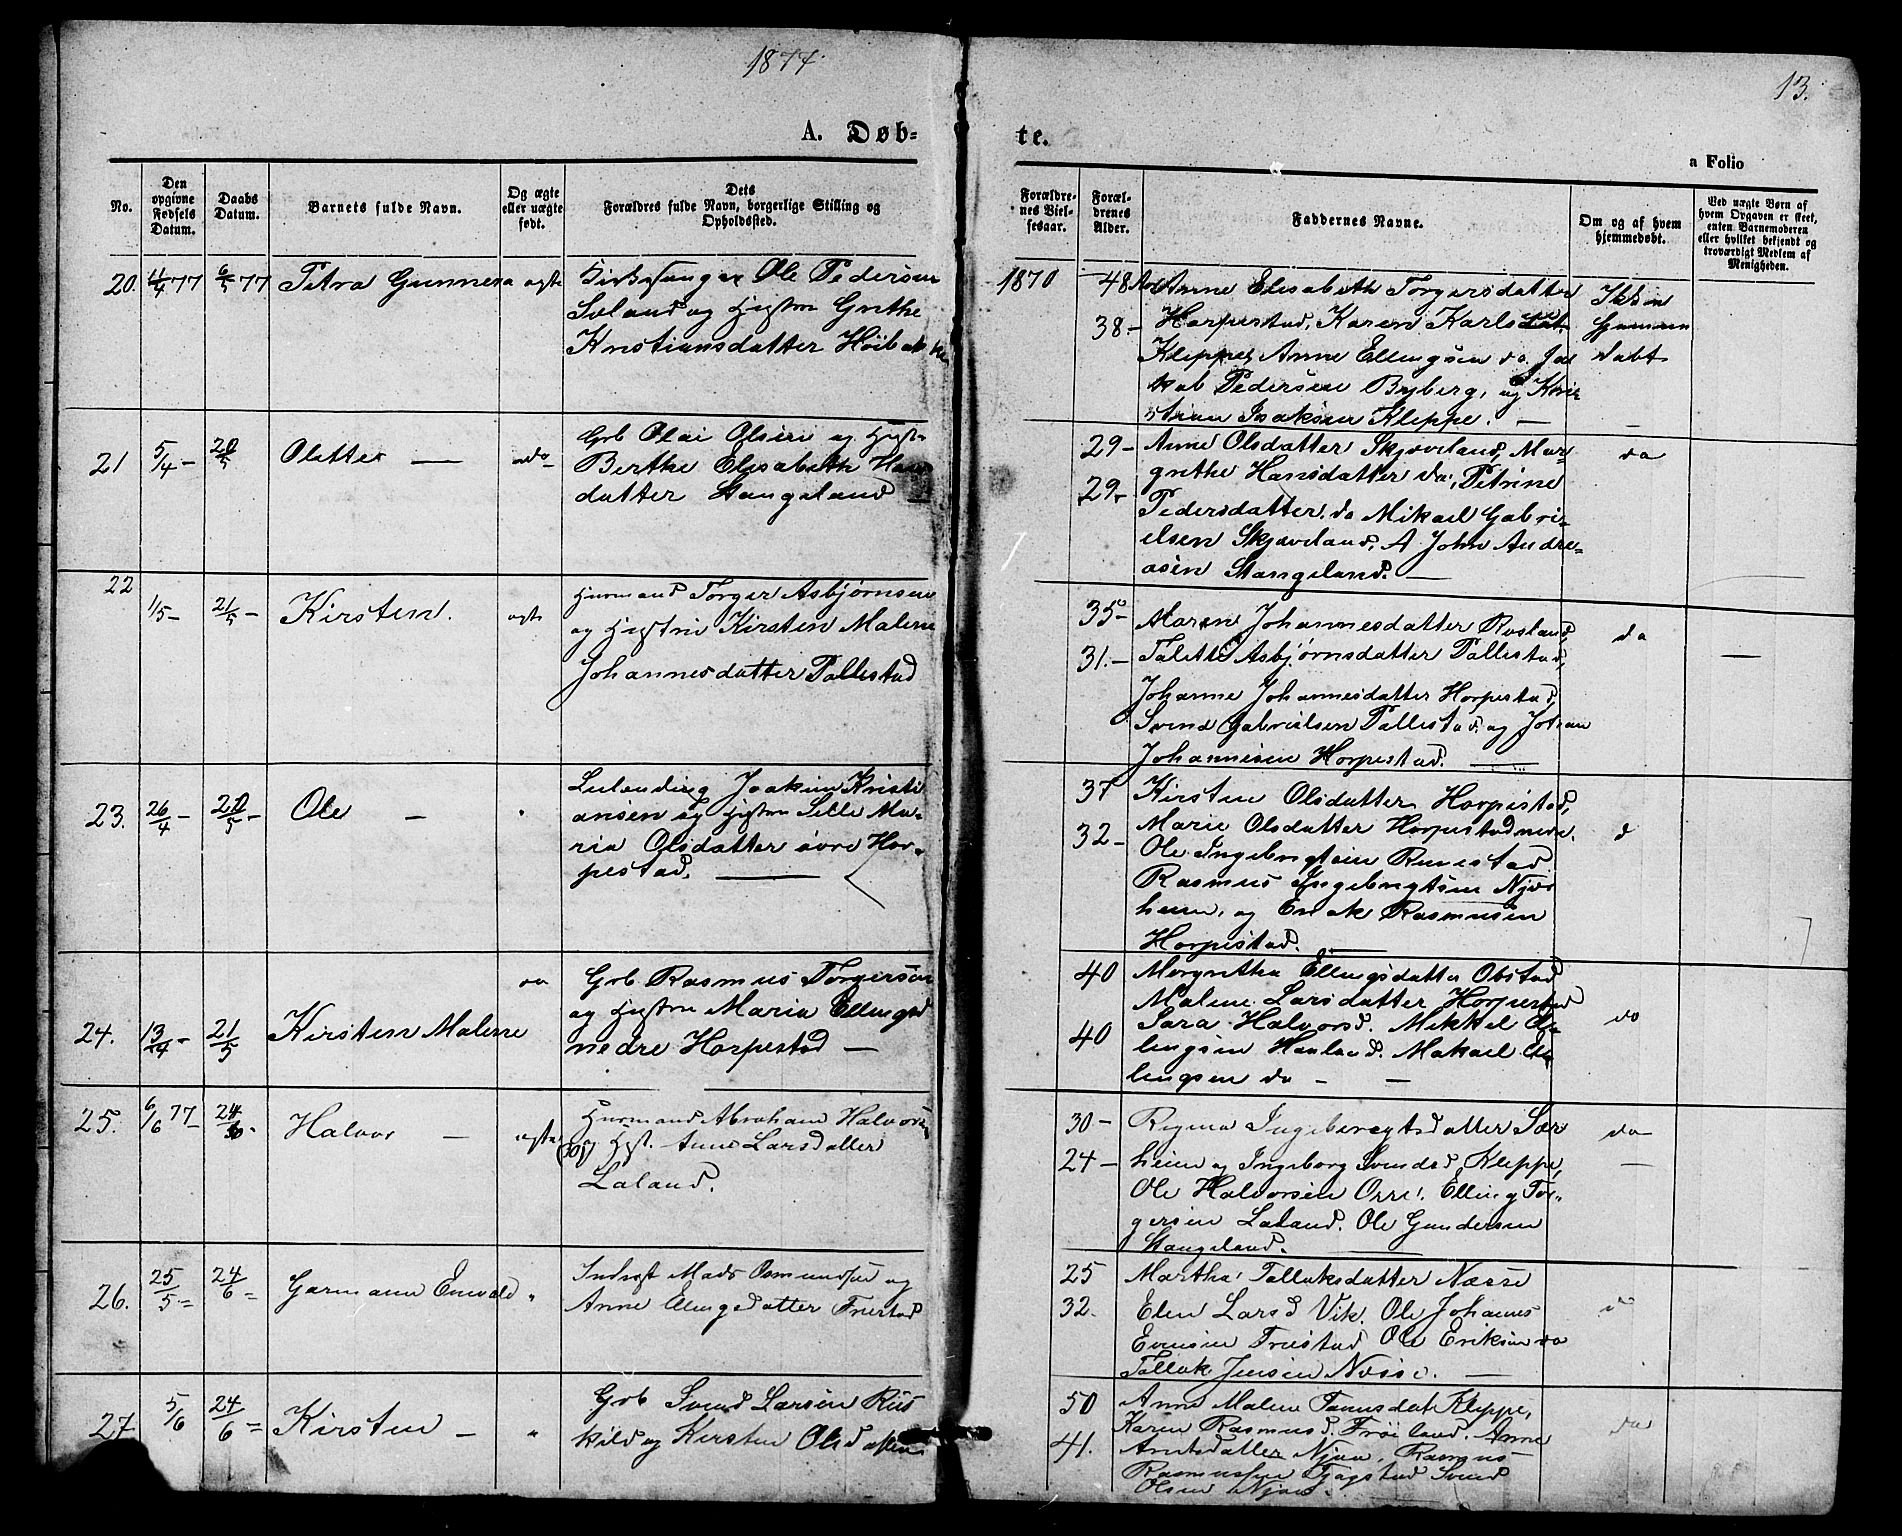 1877.
13.
A. Døb-
te.
a Folio
No.
Den
opgivne
Fødsels
Datum.
Daabs
Datum.
Barnets fulde Navn.
Og ægte
eller uægte
født.
Dets
Forældres fulde Navn, borgerlige Stilling og
Opholdssted.
Forældre-
nes Viel-
sesaar.
Foræl-
drenes
Alder.
Faddernes Navne.
Om og af hvem
hjemmedøbt.
Ved uægte Børn af
hvem Opgaven er skeet,
enten Barnemoderen
eller hvilket bekjendt og
troværdigt Medlem af
Menigheden.
20. 77 6/5 77 Petra Gunnera ægte
Kirkesanger Ole Pedersen
Søland og Hustru Grethe
Kristiansdatter
1870
48
38.-
Anne Elisabeth Torgersdatter
Horpestad, Karen Karlsdat
Kleppe, Anne Ellingsen do. Ja
kob Pedersen Byberg, og Kri
stian Isaksen Kleppe. —
Ikke
døbt
21 5/4 - Olette — do
Grb Olai Olsen og Hust-
Berthe Elisabeth Hans
datter Stangeland
29-
29-
Anne Olsdatter Skjæveland, Mar-
grethe Hansdatter do, Petrine
Pedersdatter do Mikael Gabri-
elsen Skjæveland, A John Andre-
asen Stangeland. —
do
22 1/5- 21/5- Kirsten. ægte
Huusmand Torger Asbjørnsen
og Hustru Kirsten Malene
Johannesdatter Pollestad
35
31.-
Maren Johannesdatter Rosland,
Talette Asbjørnsdatter Pollestad,
Johanne Johannesdatter Horpestad,
Svend Gabrielsen Pollestad og Johan
Johannesen Horpestad. —
do
23. 26/4 - Ole — "
Leilending Joakim Kristi
ansen og Hustru Sille Ma-
ria Olsdatter øvre Hor-
pestad. —
37
32-
Kirsten Olsdatter Horpestad,
Marie Olsdatter Horpestad nedre.
Ole Ingebrigtsen
Rasmus Ingebrigtsen Njær
heim, og Enok Rasmusen
Horpestad. —
d
24. 13/4 - 21/5 Kirsten Malene
Grb Rasmus Torgersen
og Hustru Maria Ellingsd
nedre Horpestad —
40
40
Morgretha Ellingsdatter Obstad
Malene Larsdatter Horpestad
Sara Halvorsd. Mikkel El-
lingsen Haaland. Mikael El-
lingsen do — —
do
25. 6/6 77 Halvor — ægte
Huusmand Abraham Halvors
og Hust. Anne Larsdatter
Laland.
30-
24-
Regina Ingebregtsdatter Sær
heim og Ingeborg Svendsd Kleppe,
Ole Halvorsen Orre. Elling Tor-
gersen Laland. Ole Gundersen
Stangeland. —
do
26. 25/5 - 24/6 = Garmann Enevald "
Inderst Mads Osmundsen og
Anne Elingsdatter Friestad
25
32.
Martha Tolluksdatter Næsse
Elen Larsd Vik. Ole Johannes
Evensen Friestad Ole Eriksen do
Tolluk Jensen Næsse. —
27 5/6 24/6 = Kirsten — "
Grb Svend Larsen
og Kirsten Olsdatter
50
41.
Anne Malen Tønnesdat Kleppe,
Karen Rasmusd. Frøiland. Anne
Arntsdatter Njaa, Rasmus
Rasmussen Tjøgstad Svend
Olsen Njaa.
do